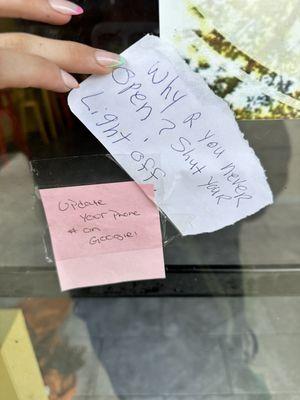 Why R you never
open ? Shut your
Light' off
Update
your phone
# on
Google!